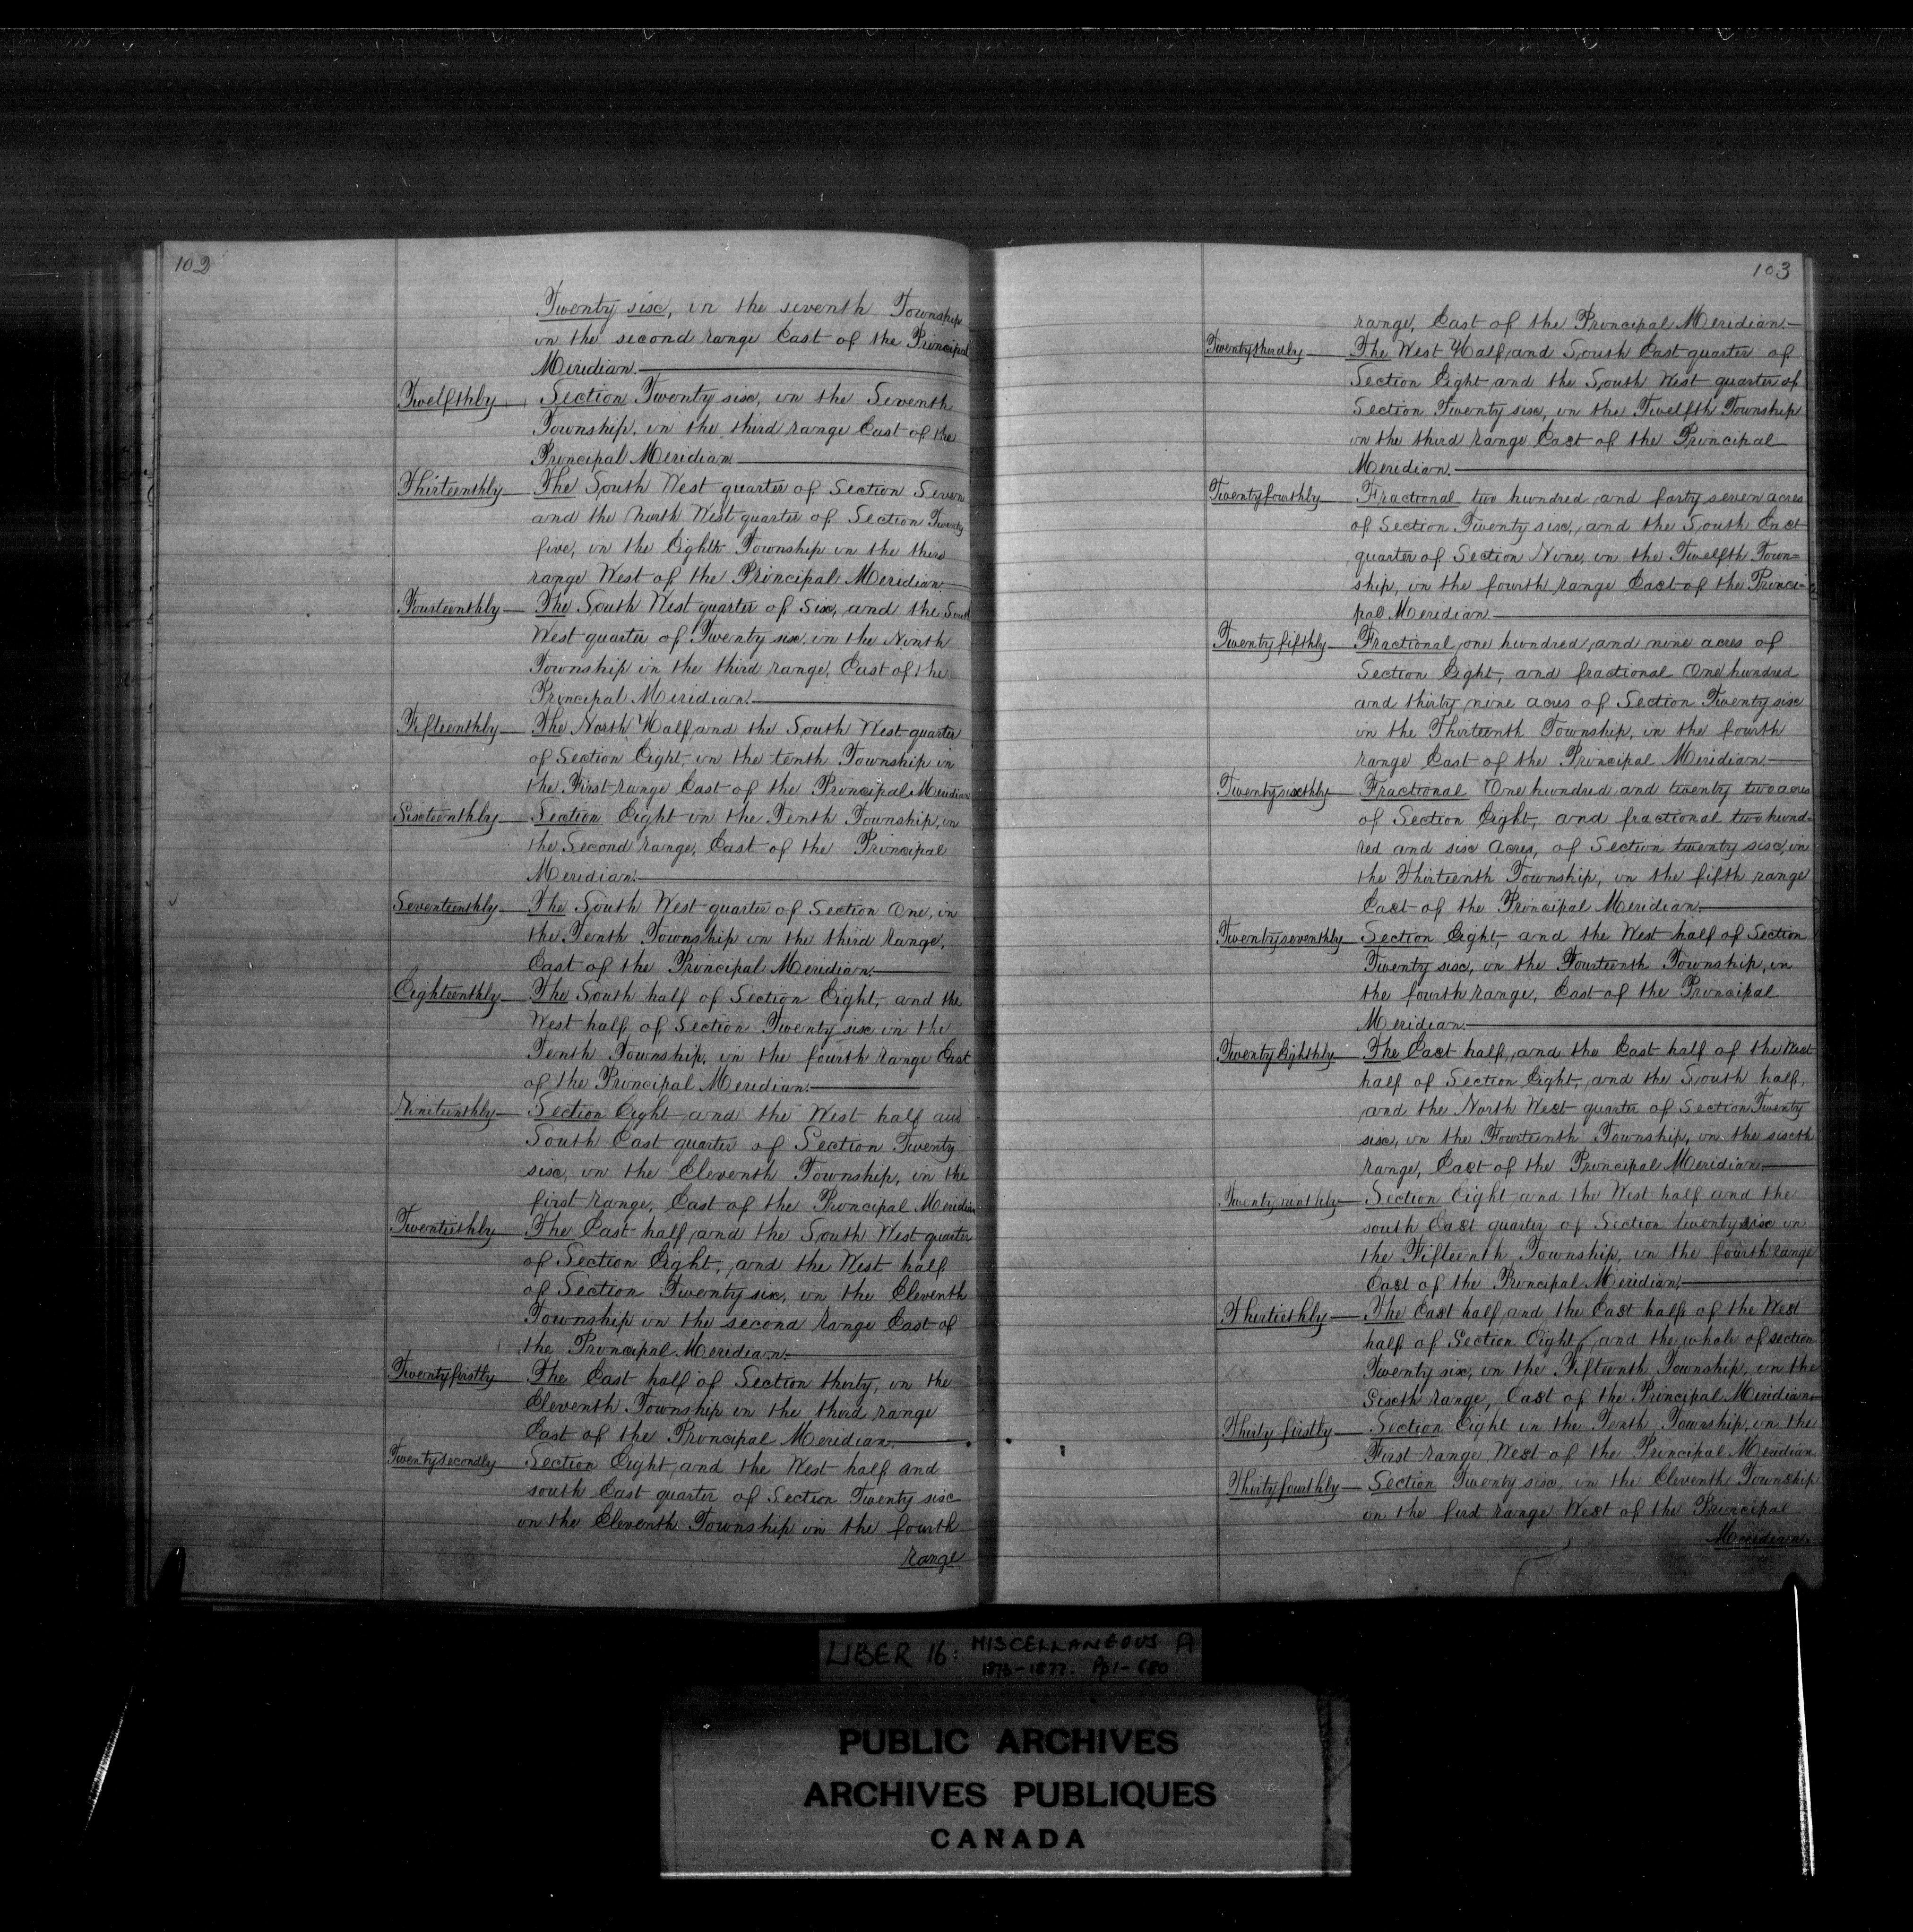 102
Twenty six, in the seventh Township
in the second range East of the Principal
Meridian.
Twelfthly Section Twenty six, in the Seventh
Township, in the third range East of the
Principal Meridian
Thirteenthly The South West quarter of Section Seven
and the North West quarter of Section Twenty
five, in the Eighth Township in the third
range West of the Principal Meridian.
Fourteenthly The South West quarter of Six, and the South
West quarter of Twenty six in the Ninth
Township in the third range, East of the
Principal Meridian.
Fifteenthly The North Half and the South West quarter
of Section Eight, in the tenth Township in
the First range East of the Principal Meridian
Sixteenthly Section Eight in the Tenth Township, in
the Second range, East of the Principal
Meridian.
Seventeenthly The South West quarter of Section One, in
the Tenth Township in the third range,
East of the Principal Meridian.
Eighteenthly The South half of Section Eight, and the
West half of Section Twenty six in the
Tenth Township, in the fourth range East
of the Principal Meridian.
Nineteenthly Section Eight and the West half and
South East quarter of Section Twenty
six, in the Eleventh Township, in the
first range, East of the Principal Meridian
Twentiethly The East half and the South West quarter
of Section Eight, and the West half
of Section Twenty six, in the Eleventh
Township in the second range East of
the Principal Meridian.
Twenty firstly The East half of Section thirty, in the
Eleventh Township in the third range
East of the Principal Meridian.
Twenty secondly Section Eight and the West half and
south East quarter of Section Twenty six
in the Eleventh Township in the fourth
range
103
range, East of the Principal Meridian.
Twenty thirdly The West Half and South East quarter of
Section Eight and the South West quarter of
Section Twenty six, in the Twelfth Township
in the third range East of the Principal
Meridian.
Twenty fourthly Fractional two hundred and forty seven acres
of Section Twenty six, and the South East
quarter of Section Nine, in the Twelfth Town=
ship, in the fourth range East of the Princi=
pal Meridian.
Twenty fifthly Fractional one hundred and nine acres of
Section Eight, and fractional One hundred
and thirty nine acres of Section Twenty six
in the Thirteenth Township, in the fourth
range East of the Principal Meridian.
Twenty sixthly Fractional One hundred and twenty two acres
of Section Eight, and fractional two hund=
red and six acres, of Section twenty six, in
the Thirteenth Township, in the fifth range
East of the Principal Meridian.
Twenty seventhly Section Eight, and the West half of Section
Twenty six, in the Fourteenth Township, in
the fourth range, East of the Principal
Meridian.
Twenty Eighthly The East half and the East half of the West
half of Section Eight, and the South half,
and the North West quarter of Section Twenty
six, in the Fourteenth Township, in the sixth
range, East of the Principal Meridian.
Twenty ninthly Section Eight and the West half and the
south East quarter of Section twenty six in
the Fifteenth Township, in the fourth range
East of the Principal Meridian.
Thirtiethly The East half and the East half of the West
half of Section Eight, and the whole of section
Twenty six, in the Fifteenth Township, in the
Sixth range, East of the Principal Meridian.
Thirty firstly Section Eight in the Tenth Township, in the
First range, West of the Principal Meridian
Thirty fourthly Section Twenty six, in the Eleventh Township
in the first range West of the Principal
Meridian.
LIBER 16: MISCELLANEOUS A
1873-1877. Pp1-680
PUBLIC ARCHIVES
ARCHIVES PUBLIQUES
CANADA